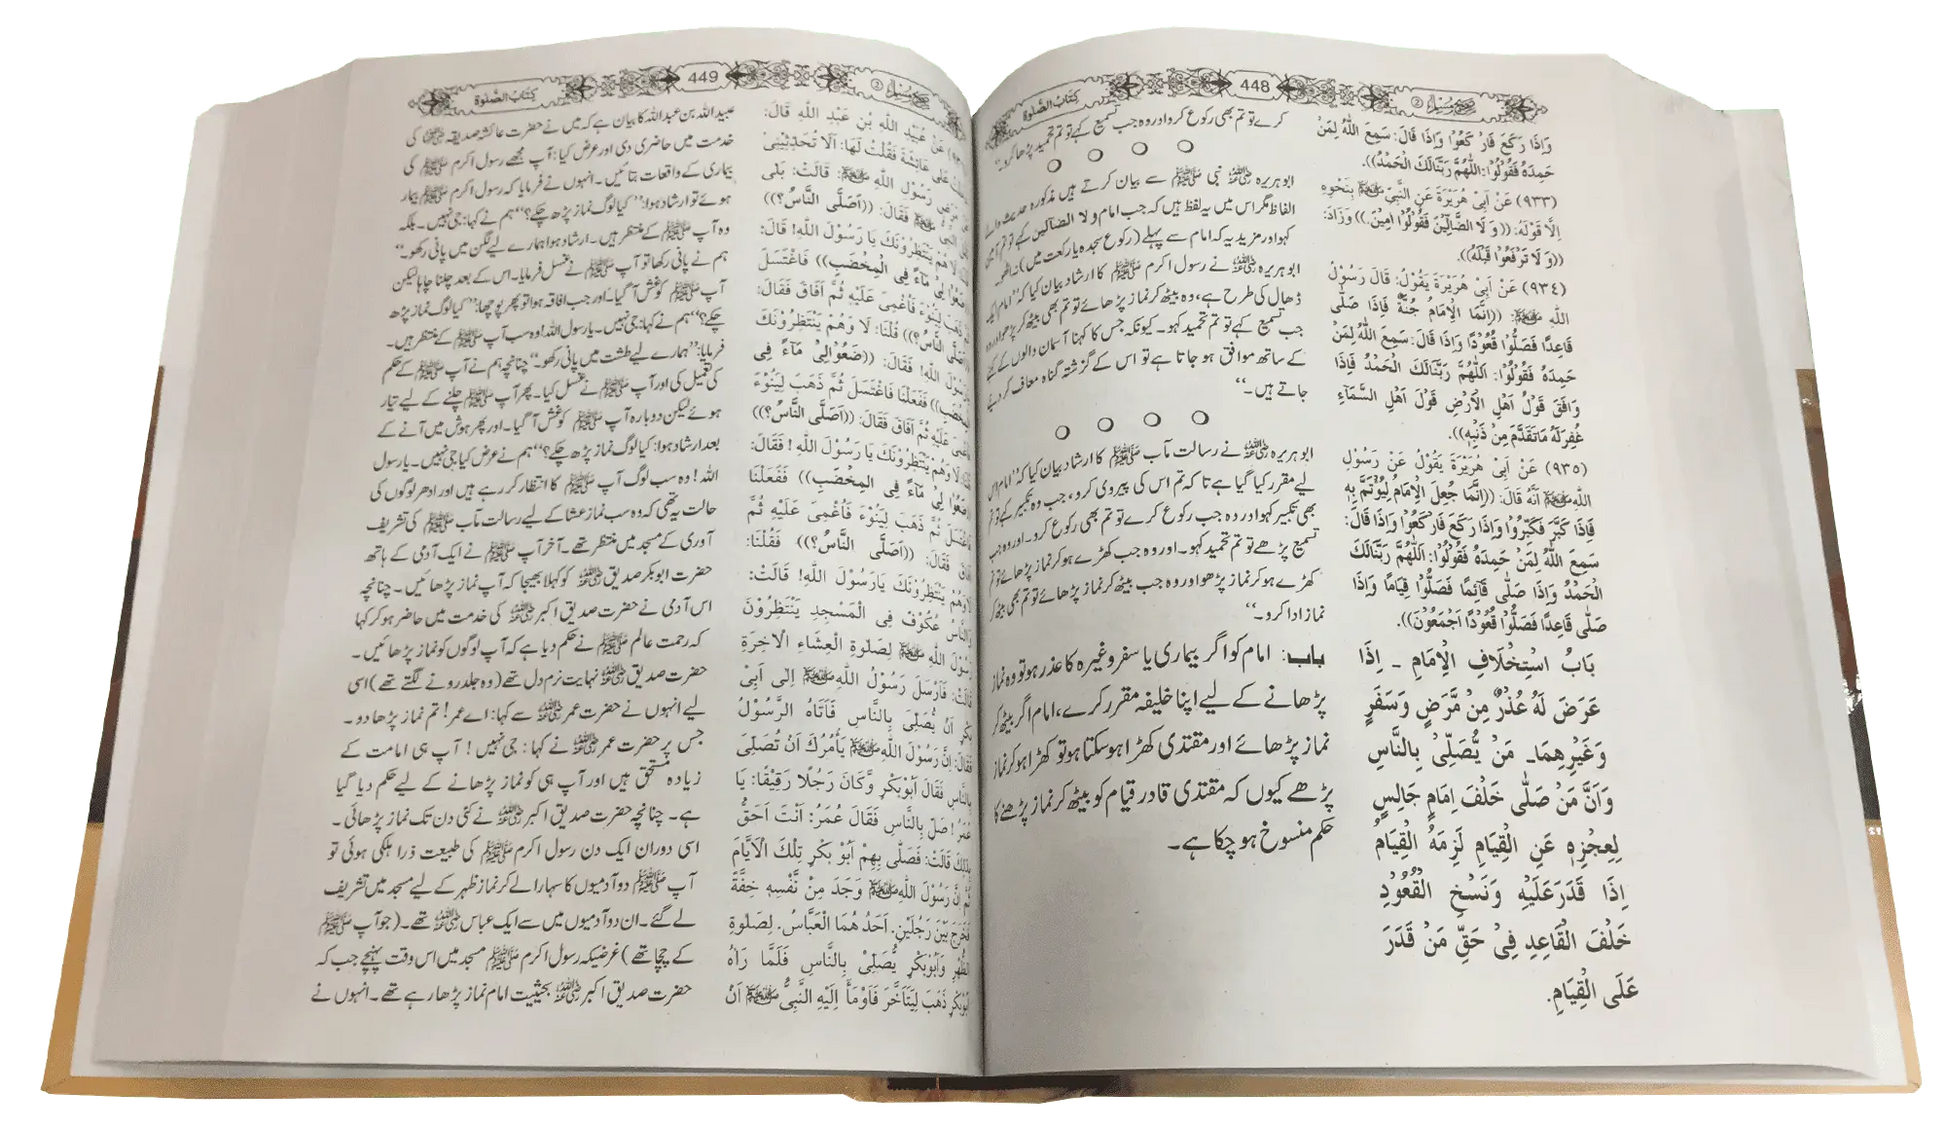 صحیح مسلم ② 448 کتاب الصلوٰۃ
وَاِذَا رَكَعَ فَارْكَعُوْا وَاِذَا قَالَ: سَمِعَ اللّٰهُ لِمَنْ
حَمِدَهٗ فَقُوْلُوْا: اَللّٰهُمَّ رَبَّنَالَكَ الْحَمْدُ)).
(٩٣٣) عَنْ اَبِىْ هُرَيْرَةَ عَنِ النَّبِيِّ ﷺ بِنَحْوِهٖ
اِلَّا قَوْلَهٗ: ((وَ لَا الضَّآلِّيْنَ فَقُوْلُوْا اٰمِيْنَ.)) وَزَادَ:
((وَ لَا تَرْفَعُوْا قَبْلَهٗ)).
(٩٣٤) عَنْ اَبِىْ هُرَيْرَةَ يَقُوْلُ: قَالَ رَسُوْلُ
اللّٰهِ ﷺ: ((اِنَّمَا الْاِمَامُ جُنَّةٌ فَاِذَا صَلّٰى
قَاعِدًا فَصَلُّوْا قُعُوْدًا وَاِذَا قَالَ: سَمِعَ اللّٰهُ لِمَنْ
حَمِدَهٗ فَقُوْلُوْا: اَللّٰهُمَّ رَبَّنَالَكَ الْحَمْدُ فَاِذَا
وَافَقَ قَوْلُ اَهْلِ الْاَرْضِ قَوْلَ اَهْلِ السَّمَآءِ
غُفِرَلَهٗ مَاتَقَدَّمَ مِنْ ذَنْبِهٖ)).
(٩٣٥) عَنْ اَبِىْ هُرَيْرَةَ يَقُوْلُ عَنْ رَسُوْلِ
اللّٰهِ ﷺ اَنَّهٗ قَالَ: ((اِنَّمَا جُعِلَ الْاِمَامُ لِيُؤْتَمَّ بِهٖ
فَاِذَا كَبَّرَ فَكَبِّرُوْا وَاِذَا رَكَعَ فَارْكَعُوْا وَاِذَا قَالَ:
سَمِعَ اللّٰهُ لِمَنْ حَمِدَهٗ فَقُوْلُوْا: اَللّٰهُمَّ رَبَّنَالَكَ
الْحَمْدُ وَاِذَا صَلّٰى قَآئِمًا فَصَلُّوْا قِيَامًا وَاِذَا
صَلّٰى قَاعِدًا فَصَلُّوْا قُعُوْدًا اَجْمَعُوْنَ)).
بَابُ اسْتِخْلَافِ الْاِمَامِ ـ اِذَا
عَرَضَ لَهٗ عُذْرٌ مِنْ مَّرَضٍ وَسَفَرٍ
وَغَيْرِهِمَا۔ مَنْ يُّصَلِّىْ بِالنَّاسِ
وَاَنَّ مَنْ صَلّٰى خَلْفَ اِمَامٍ جَالِسٍ
لِعِجْزِهٖ عَنِ الْقِيَامِ لَزِمَهُ الْقِيَامُ
اِذَا قَدَرَعَلَيْهِ وَنَسْخِ الْقُعُوْدِ
خَلْفَ الْقَاعِدِ فِىْ حَقِّ مَنْ قَدَرَ
عَلَى الْقِيَامِ.
کرے تو تم بھی رکوع کرو اور وہ جب تسمیع کہے تو تم تحمید پڑھا کرو۔“
ابو ہریرہ رضی اللہ عنہ نبی ﷺ سے بیان کرتے ہیں مذکورہ حدیث والے
الفاظ مگر اس میں یہ لفظ ہیں کہ جب امام و لا الضالین کہے تو تم آمین
کہو اور مزید یہ کہ امام سے پہلے (رکوع سجدہ یا رکعت میں) نہ اٹھو۔
ابو ہریرہ رضی اللہ عنہ نے رسول اکرم ﷺ کا ارشاد بیان کیا کہ ”امام ایک
ڈھال کی طرح ہے، وہ بیٹھ کر نماز پڑھائے تو تم بھی بیٹھ کر پڑھو اور وہ
جب تسمیع کہے تو تم تحمید کہو۔ کیونکہ جس کا کہنا آسمان والوں کے کہنے
کے ساتھ موافق ہو جاتا ہے تو اس کے گزشتہ گناہ معاف کر دیئے
جاتے ہیں۔“
ابو ہریرہ رضی اللہ عنہ نے رسالت مآب ﷺ کا ارشاد بیان کیا کہ ”امام اس
لیے مقرر کیا گیا ہے تا کہ تم اس کی پیروی کرو، جب وہ تکبیر کہے تو تم
بھی تکبیر کہو اور وہ جب رکوع کرے تو تم بھی رکوع کرو۔ اور وہ جب
تسمیع پڑھے تو تم تحمید کہو۔ اور وہ جب کھڑے ہو کر نماز پڑھائے تو تم
کھڑے ہو کر نماز پڑھو اور وہ جب بیٹھ کر نماز پڑھائے تو تم بھی بیٹھ کر
نماز ادا کرو۔“
باب: امام کو اگر بیماری یا سفر وغیرہ کا عذر ہو تو وہ نماز
پڑھانے کے لیے اپنا خلیفہ مقرر کرے، امام اگر بیٹھ کر
نماز پڑھائے اور مقتدی کھڑا ہو سکتا ہو تو کھڑا ہو کر نماز
پڑھے کیوں کہ مقتدی قادر قیام کو بیٹھ کر نماز پڑھنے کا
حکم منسوخ ہو چکا ہے۔
صحیح مسلم ② 449 کتاب الصلوٰۃ
عَنْ عُبَيْدِ اللّٰهِ بْنِ عَبْدِ اللّٰهِ قَالَ:
عَلٰى عَائِشَةَ فَقُلْتُ لَهَا: اَلَا تُحَدِّثِيْنِىْ
رَسُوْلِ اللّٰهِ ﷺ: قَالَتْ: بَلٰى
ﷺ فَقَالَ: ((اَصَلَّى النَّاسُ؟))
هُمْ يَنْتَظِرُوْنَكَ يَا رَسُوْلَ اللّٰهِ! قَالَ:
مَآءً فِى الْمِخْضَبِ)) فَاغْتَسَلَ
ذَهَبَ لِيَنُوْءَ فَاُغْمِىَ عَلَيْهِ ثُمَّ اَفَاقَ فَقَالَ:
النَّاسُ؟)) قُلْنَا: لَا وَهُمْ يَنْتَظِرُوْنَكَ
اللّٰهِ! فَقَالَ: ((ضَعُوْالِىْ مَآءً فِى
فَفَعَلْنَا فَاغْتَسَلَ ثُمَّ ذَهَبَ لِيَنُوْءَ
عَلَيْهِ ثُمَّ اَفَاقَ فَقَالَ: ((اَصَلَّى النَّاسُ؟))
لَا وَهُمْ يَنْتَظِرُوْنَكَ يَا رَسُوْلَ اللّٰهِ! فَقَالَ:
مَآءً فِى الْمِخْضَبِ)) فَفَعَلْنَا
ثُمَّ ذَهَبَ لِيَنُوْءَ فَاُغْمِىَ عَلَيْهِ ثُمَّ
فَقَالَ: ((اَصَلَّى النَّاسُ؟)) فَقُلْنَا:
يَنْتَظِرُوْنَكَ يَارَسُوْلَ اللّٰهِ! قَالَتْ:
عُكُوْفٌ فِى الْمَسْجِدِ يَنْتَظِرُوْنَ
رَسُوْلَ اللّٰهِ ﷺ لِصَلٰوةِ الْعِشَاءِ الْاٰخِرَةِ
قَالَتْ: فَاَرْسَلَ رَسُوْلُ اللّٰهِ ﷺ اِلٰى اَبِىْ
بَكْرٍ اَنْ يُّصَلِّىَ بِالنَّاسِ فَاَتَاهُ الرَّسُوْلُ
فَقَالَ: اِنَّ رَسُوْلَ اللّٰهِ ﷺ يَأْمُرُكَ اَنْ تُصَلِّىَ
بِالنَّاسِ فَقَالَ اَبُوْبَكْرٍ وَّكَانَ رَجُلًا رَقِيْقًا: يَا
عُمَرُ! صَلِّ بِالنَّاسِ فَقَالَ عُمَرُ: اَنْتَ اَحَقُّ
بِذٰلِكَ قَالَتْ: فَصَلّٰى بِهِمْ اَبُوْ بَكْرٍ تِلْكَ الْاَيَّامَ
ثُمَّ اِنَّ رَسُوْلَ اللّٰهِ ﷺ وَجَدَ مِنْ نَّفْسِهٖ خِفَّةً
فَخَرَجَ بَيْنَ رَجُلَيْنِ. اَحَدُ هُمَا الْعَبَّاسُ. لِصَلٰوةِ
الظُّهْرِ وَاَبُوْبَكْرٍ يُّصَلِّىْ بِالنَّاسِ فَلَمَّا رَاٰهُ
اَبُوْبَكْرٍ ذَهَبَ لِيَتَاَخَّرَ فَاَوْمَاَ اِلَيْهِ النَّبِىُّ ﷺ اَنْ
عبید اللہ بن عبد اللہ کا بیان ہے کہ میں نے حضرت عائشہ صدیقہ رضی اللہ عنہا کی
خدمت میں حاضری دی اور عرض کیا: آپ مجھے رسول اکرم ﷺ کی
بیماری کے واقعات بتائیں۔ انہوں نے فرمایا کہ رسول اکرم ﷺ بیمار
ہوئے تو ارشاد ہوا: ”کیا لوگ نماز پڑھ چکے؟“ ہم نے کہا: جی نہیں۔ بلکہ
وہ آپ ﷺ کے منتظر ہیں۔ ارشاد ہوا ہمارے لیے لگن میں پانی رکھو۔“
ہم نے پانی رکھا تو آپ ﷺ نے غسل فرمایا۔ اس کے بعد چلنا چاہا لیکن
آپ ﷺ کو غش آ گیا۔ اور جب افاقہ ہوا تو پھر پوچھا: ”کیا لوگ نماز پڑھ
چکے؟“ ہم نے کہا: جی نہیں۔ یا رسول اللہ! وہ سب آپ ﷺ کے منتظر ہیں۔
فرمایا: ”ہمارے لیے طشت میں پانی رکھو۔“ چنانچہ ہم نے آپ ﷺ کے حکم
کی تعمیل کی اور آپ ﷺ نے غسل کیا۔ پھر آپ ﷺ چلنے کے لیے تیار
ہوئے لیکن دوبارہ آپ ﷺ کو غش آ گیا۔ اور پھر ہوش میں آنے کے
بعد ارشاد ہوا: کیا لوگ نماز پڑھ چکے؟“ ہم نے عرض کیا جی نہیں۔ یا رسول
اللہ! وہ سب لوگ آپ ﷺ کا انتظار کر رہے ہیں اور ادھر لوگوں کی
حالت یہ تھی کہ وہ سب نماز عشا کے لیے رسالت مآب ﷺ کی تشریف
آوری کے مسجد میں منتظر تھے۔ آخر آپ ﷺ نے ایک آدمی کے ہاتھ
حضرت ابوبکر صدیق رضی اللہ عنہ کو کہلا بھیجا کہ آپ نماز پڑھائیں۔ چنانچہ
اس آدمی نے حضرت صدیق اکبر رضی اللہ عنہ کی خدمت میں حاضر ہو کر کہا
کہ رحمت عالم ﷺ نے حکم دیا ہے کہ آپ لوگوں کو نماز پڑھائیں۔
حضرت صدیق رضی اللہ عنہ نہایت نرم دل تھے (وہ جلد رونے لگتے تھے) اسی
لیے انہوں نے حضرت عمر رضی اللہ عنہ سے کہا: اے عمر! تم نماز پڑھا دو۔
جس پر حضرت عمر رضی اللہ عنہ نے کہا: جی نہیں! آپ ہی امامت کے
زیادہ مستحق ہیں اور آپ ہی کو نماز پڑھانے کے لیے حکم دیا گیا
ہے۔ چنانچہ حضرت صدیق اکبر رضی اللہ عنہ نے کئی دن تک نماز پڑھائی۔
اسی دوران ایک دن رسول اکرم ﷺ کی طبیعت ذرا ہلکی ہوئی تو
آپ ﷺ دو آدمیوں کا سہارا لے کر نماز ظہر کے لیے مسجد میں تشریف
لے گئے۔ ان دو آدمیوں میں سے ایک عباس رضی اللہ عنہ تھے۔ (جو آپ ﷺ
کے چچا تھے) غرضیکہ رسول اکرم ﷺ مسجد میں اس وقت پہنچے جب کہ
حضرت صدیق اکبر رضی اللہ عنہ بحیثیت امام نماز پڑھا رہے تھے۔ انہوں نے